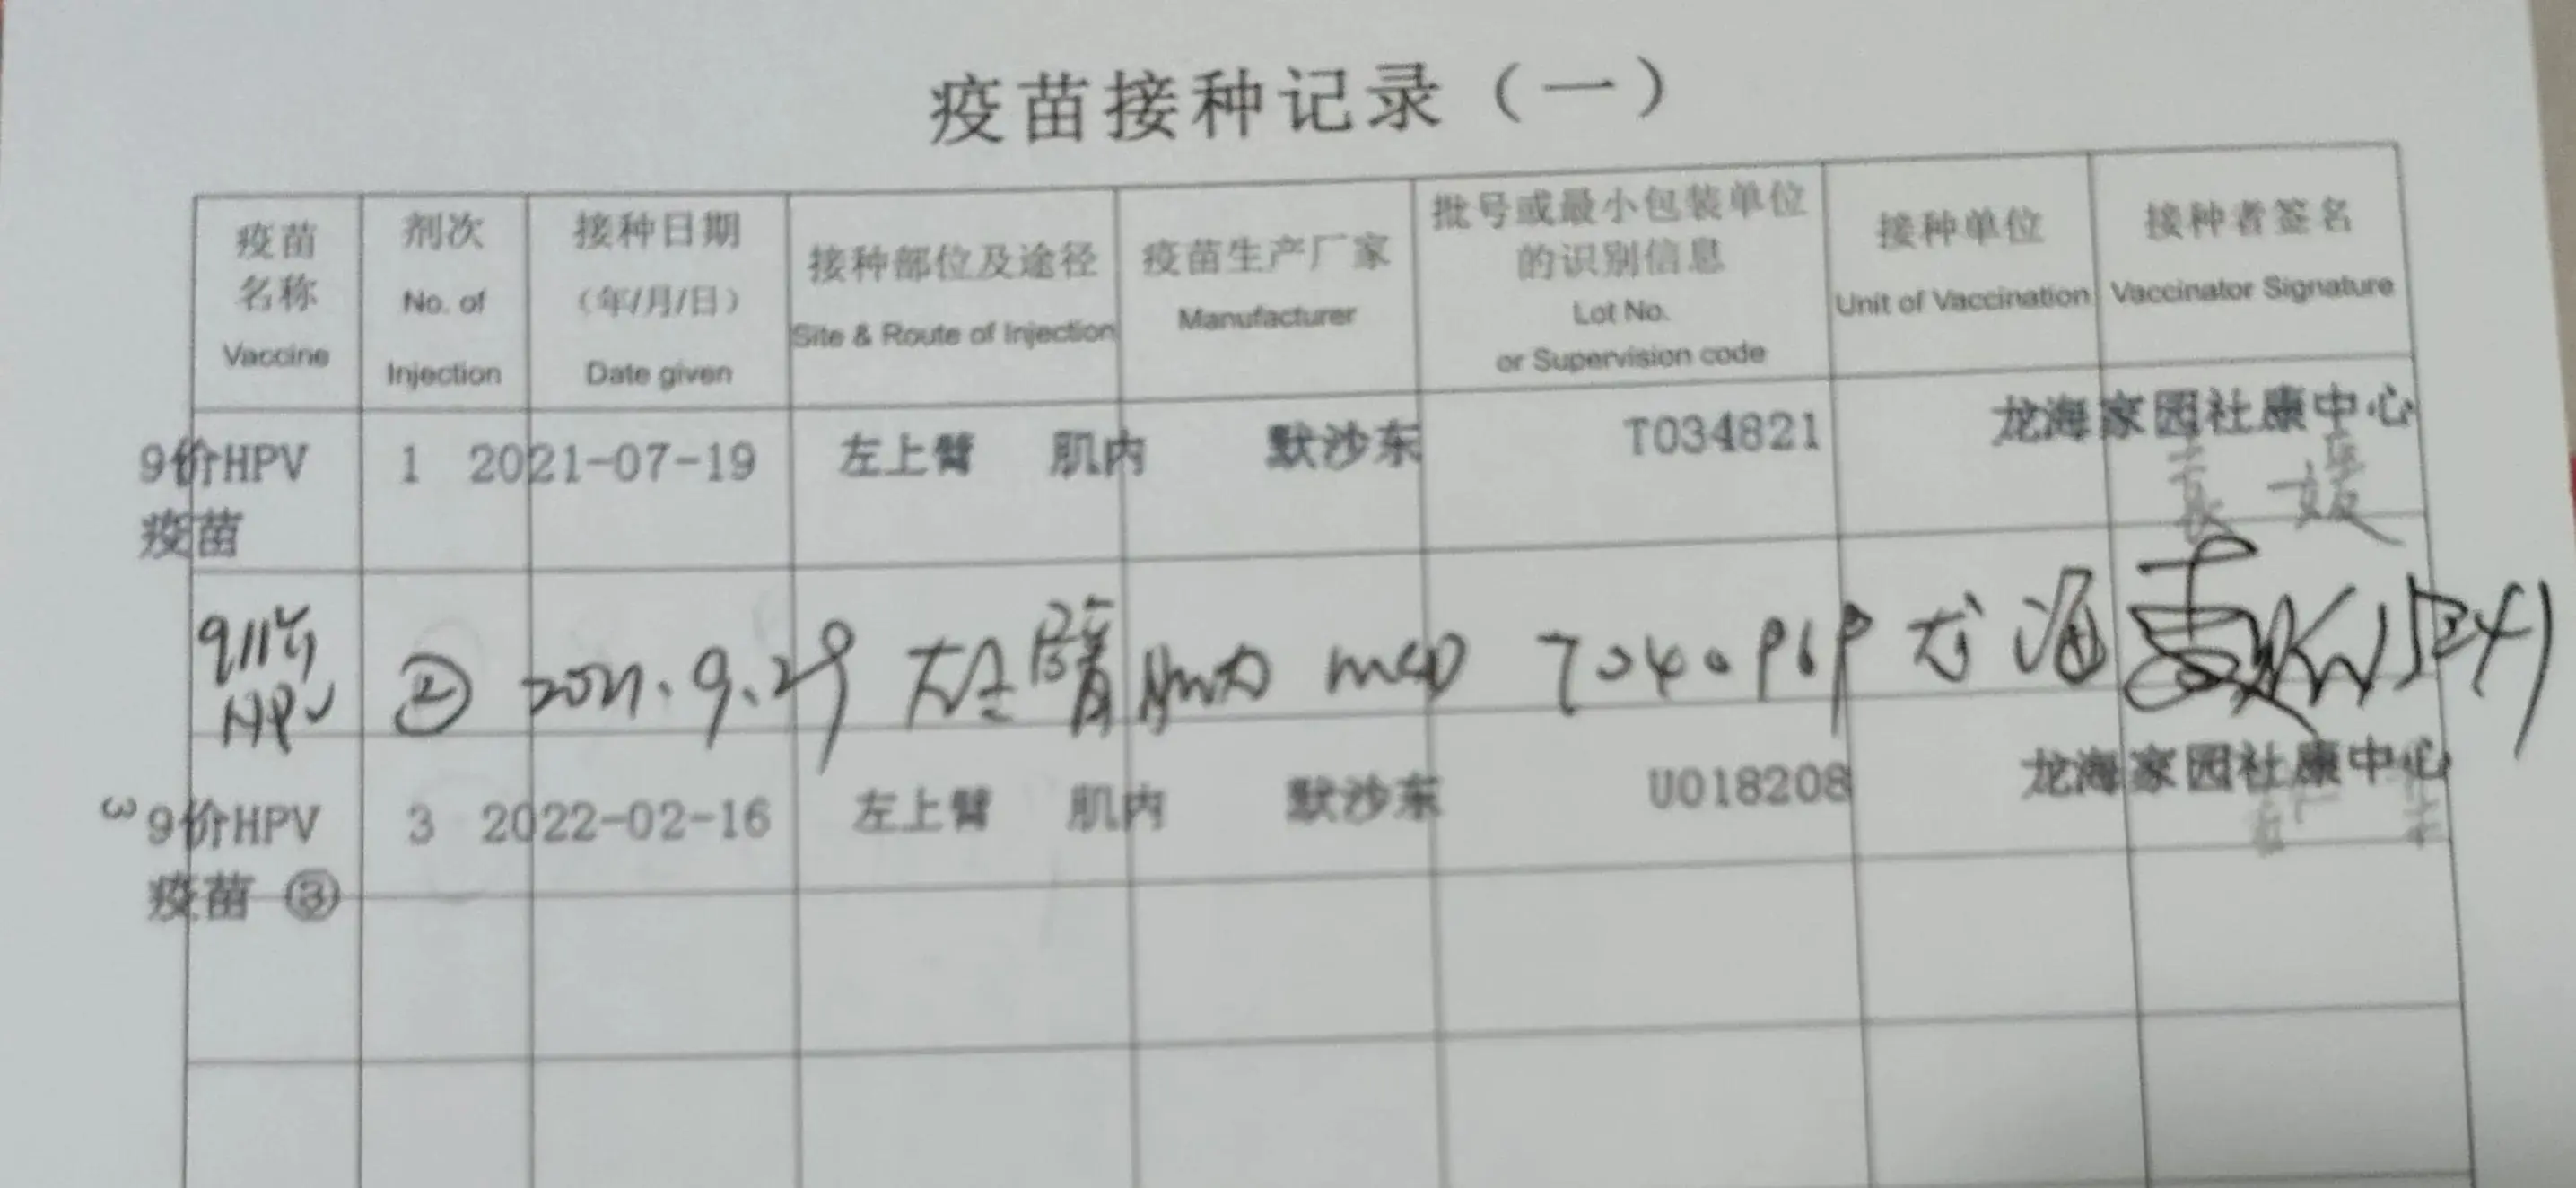 疫苗接种记录（一）
疫苗名称 Vaccine
剂次 No. of Injection
接种日期（年/月/日） Date given
接种部位及途径 Site & Route of Injection
疫苗生产厂家 Manufacturer
批号或最小包装单位的识别信息 Lot No. or Supervision code
接种单位 Unit of Vaccination
接种者签名 Vaccinator Signature
9价HPV 1 2021-07-19 左上臂 肌内 默沙东 T034821 龙海家园社康中心
疫苗
9价 ② 2021.9.29 左上臂 T040 龙海
HPV
3 9价HPV 3 2022-02-16 左上臂 肌内 默沙东 U018208 龙海家园社康中心
疫苗 ③